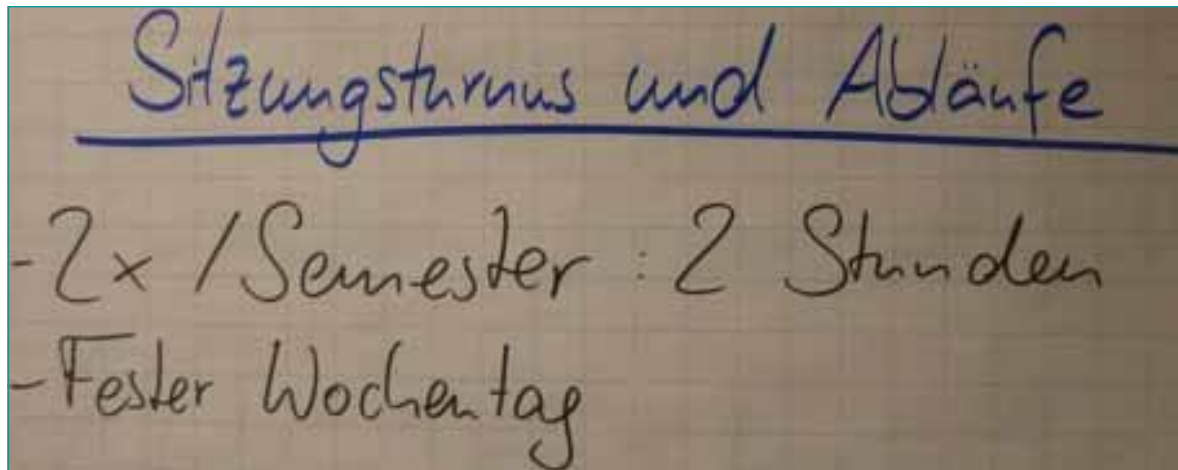 Sitzungsturnus und Abläufe
- 2x / Semester : 2 Stunden
- Fester Wochentag